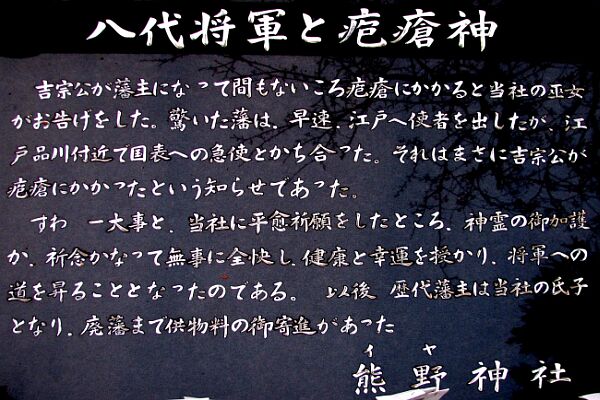 八代将軍と疱瘡神
吉宗公が藩主になって間もないころ疱瘡にかかると当社の巫女
がお告げをした。驚いた藩は、早速、江戸へ使者を出したが、江
戸品川付近で国表への急使とかち合った。それはまさに吉宗公が
疱瘡にかかったという知らせであった。
すわ 一大事と、当社に平愈祈願をしたところ、神霊の御加護
か、祈念かなって無事に全快し、健康と幸運を授かり、将軍への
道を昇ることとなったのである。 以後 歴代藩主は当社の氏子
となり、廃藩まで供物料の御寄進があった
イヤ
熊野神社